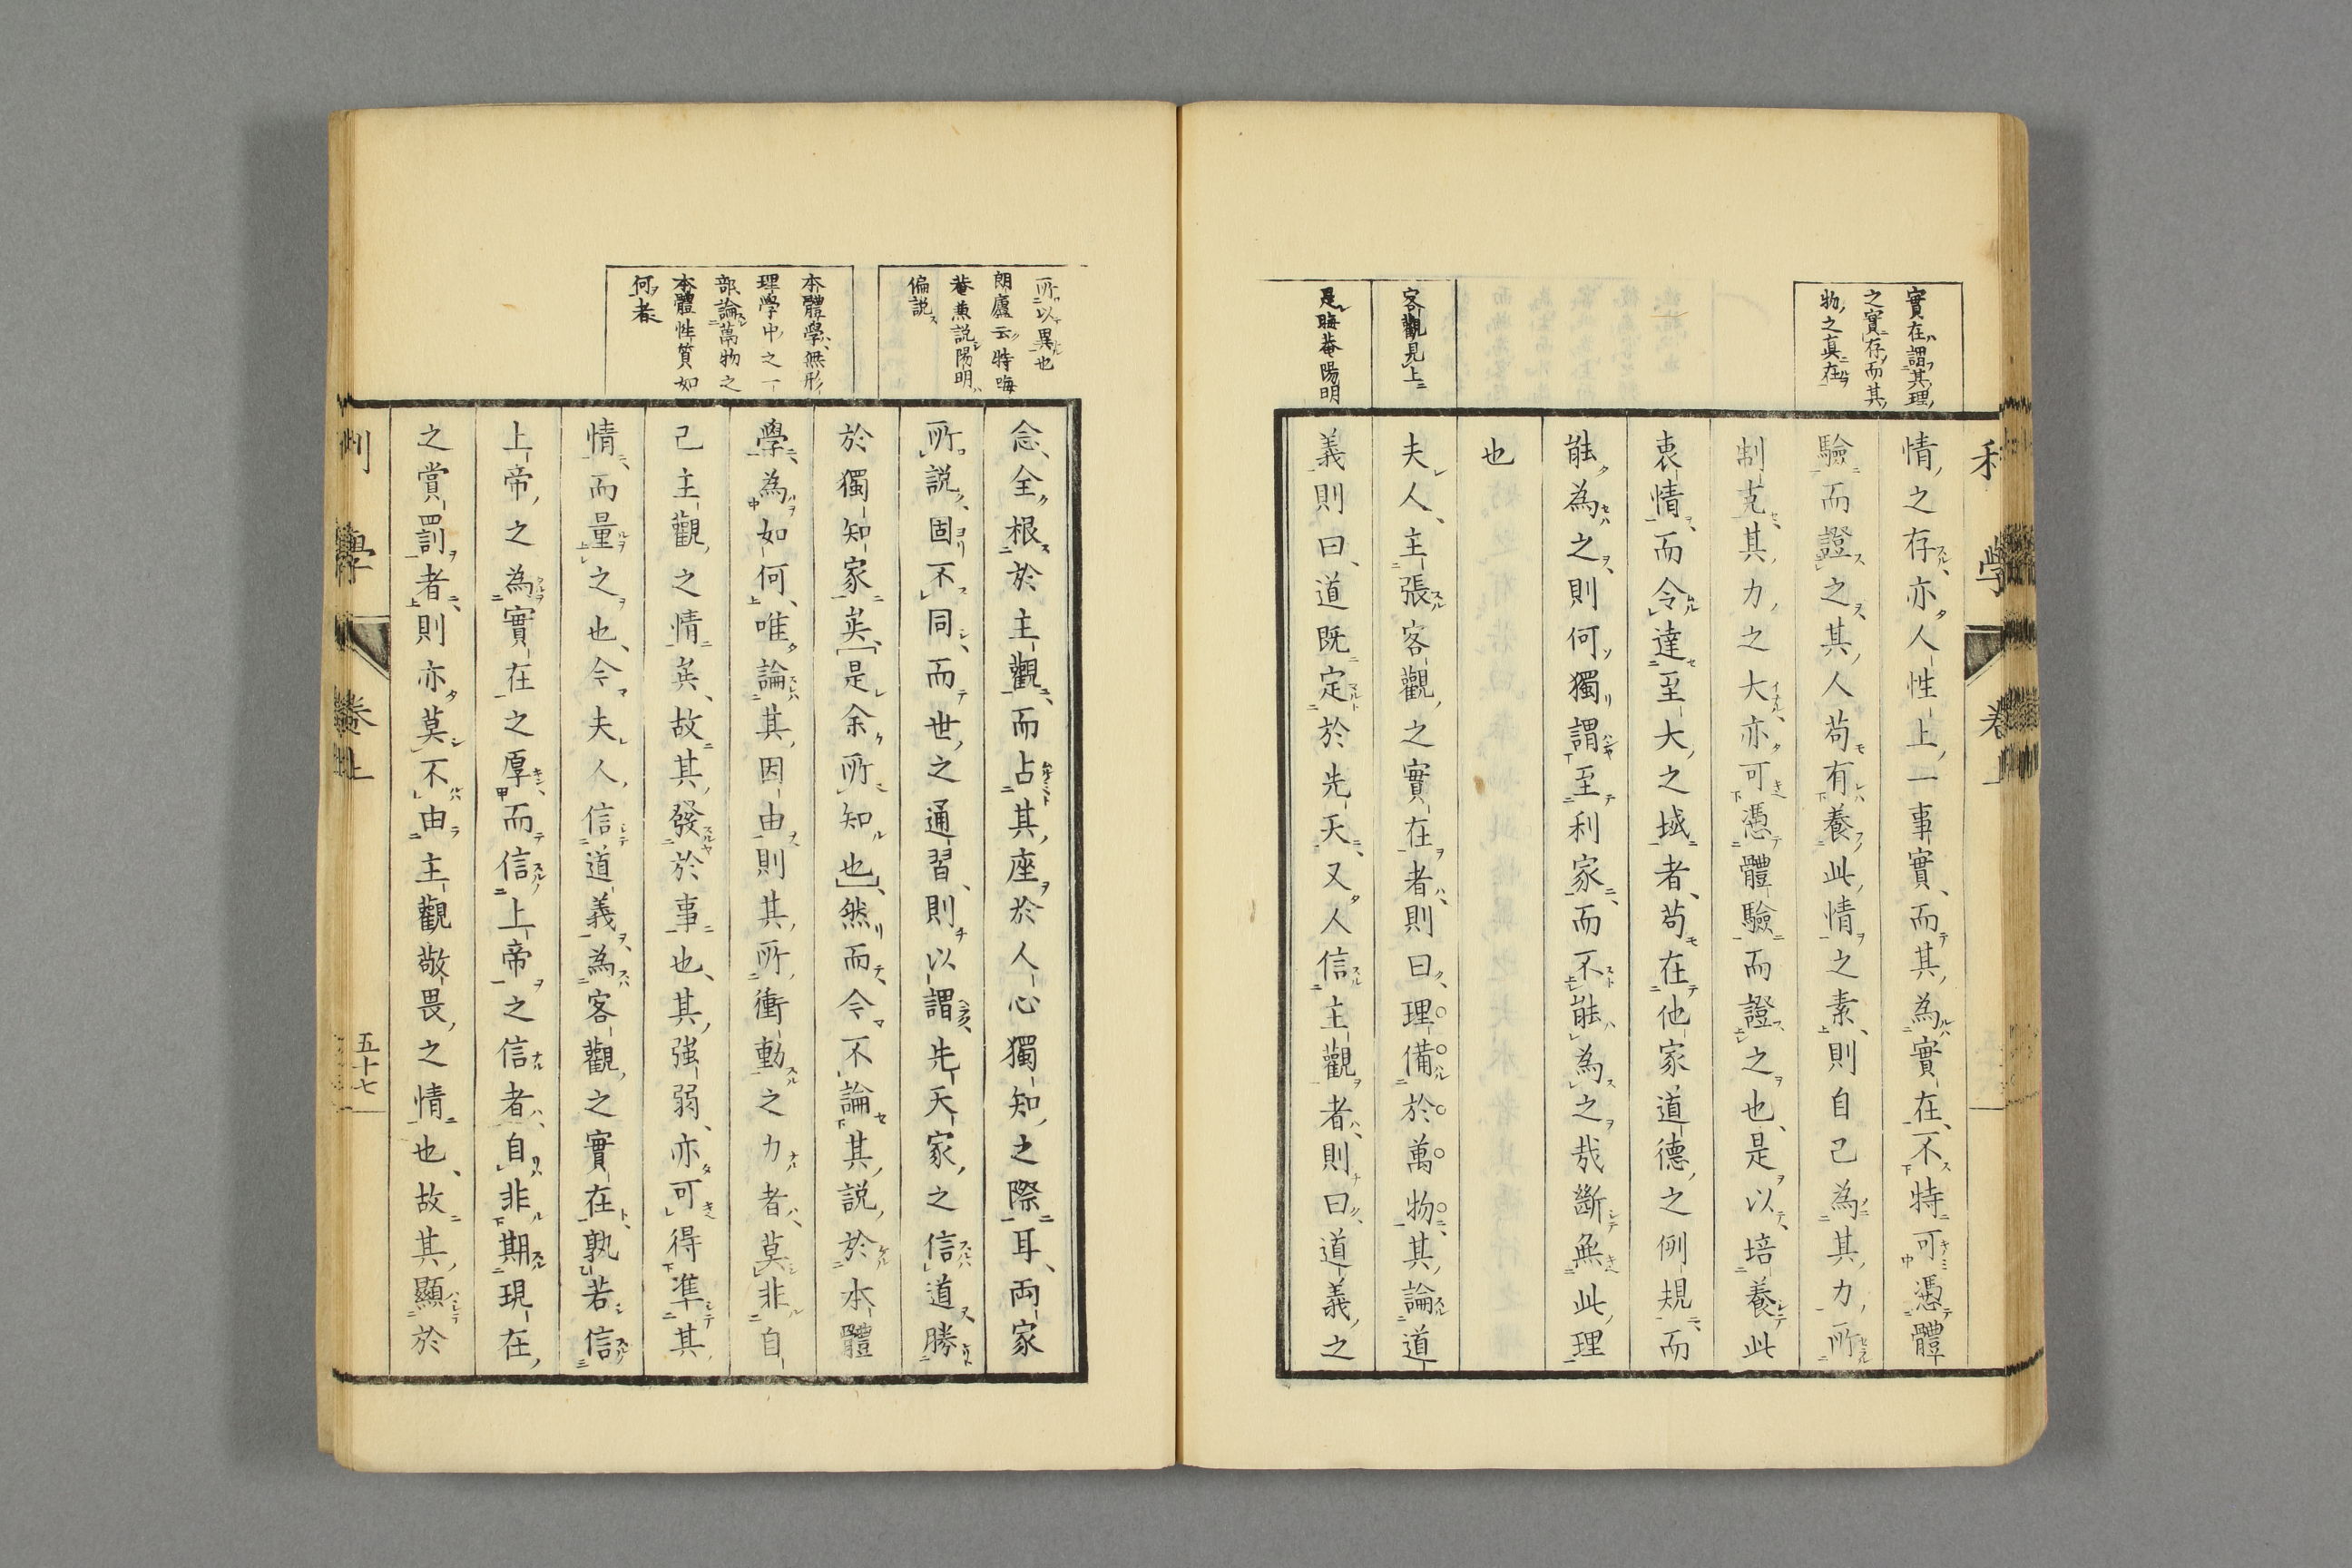 實在謂其理
之實存而其
物之真在
客觀見上
是晦菴陽明
利學 卷上
情之存亦人性上一事實、而其為實在、不特可憑體
驗而證之、其人苟有養此情之素、則自己為其力所
制克、其力之大亦可憑體驗而證之也、是以培養此
衷情、而令達至大之域者、苟在他家道德之例規、而
能為之、則何獨謂至利家、而不能為之哉斷無此理
也
夫人、主張客觀之實在者、則曰、理備於萬物、其論道
義則曰、道既定於先天、又人信主觀者、則曰、道義之
所以異也
朗廬云特晦
菴兼說陽明
偏説
本體學、無形
理學中之一
部論萬物之
本體性質如
何者
念、全根於主觀、而占其座於人心獨知之際耳、兩家
所説、固不同、而世之通習、則以謂先天家之信道勝
於獨知家矣、[是余所知也]、然而今不論其説於本體
學、為如何、唯論其因由、則其所衝動之力者、莫非自
己主觀之情矣、故其發於事也、其強弱、亦可得準其
情、而量之也、今夫人信道義、為客觀之實在、孰若信
上帝之為實在之厚而信上帝之信者、自非期現在
之賞罰者、則亦莫不由主觀敬畏之情也、故其顯於
利學 卷上
五十七